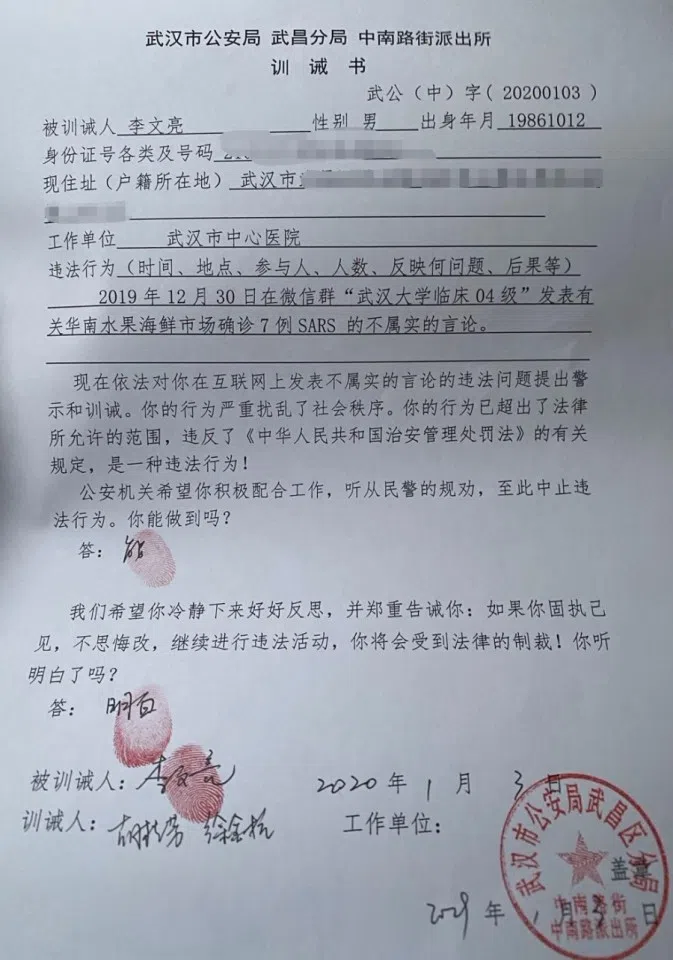 武汉市公安局 武昌分局 中南路街派出所
训 诫 书
武公（中）字( 20200103 )
被训诫人 李文亮 性别 男 出身年月 19861012
身份证号各类及号码
现住址（户籍所在地） 武汉市
工作单位 武汉市中心医院
违法行为（时间、地点、参与人、人数、反映何问题、后果等）
2019 年 12 月 30 日在微信群“武汉大学临床 04 级”发表有
关华南水果海鲜市场确诊 7 例 SARS 的不属实的言论。
现在依法对你在互联网上发表不属实的言论的违法问题提出警
示和训诫。你的行为严重扰乱了社会秩序。你的行为已超出了法律
所允许的范围，违反了《中华人民共和国治安管理处罚法》的有关
规定，是一种违法行为！
公安机关希望你积极配合工作，听从民警的规劝，至此中止违
法行为。你能做到吗？
答： 能
我们希望你冷静下来好好反思，并郑重告诫你：如果你固执己
见，不思悔改，继续进行违法活动，你将会受到法律的制裁！你听
明白了吗？
答： 明白
被训诫人：李文亮 2020 年 1 月 3 日
训诫人： 工作单位：
武汉市公安局武昌区分局
盖章
中南路街
中南路派出所
年 1 月 3 日